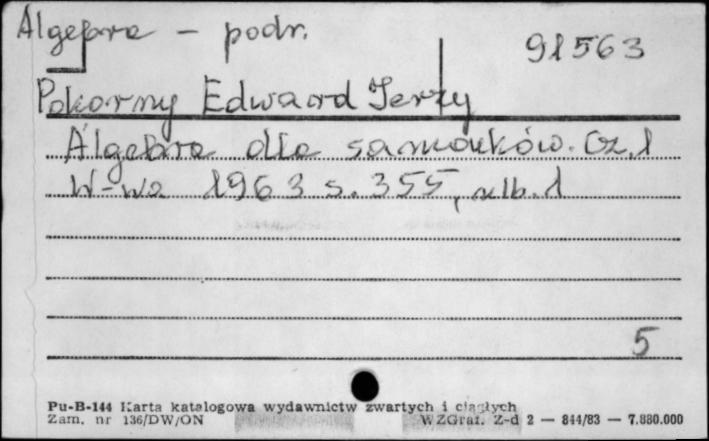 Algebra - podr.
91563
Pokorny Edward Jerzy
Algebra dla samouków. Cz. 1
W-wa 1963 s. 355, nlb. 1
5
Pu-B-144 Karta katalogowa wydawnictw zwartych i ciągłych
Zam. nr 136/DW/ON WZGraf. Z-d 2 — 844/83 — 7.880.000